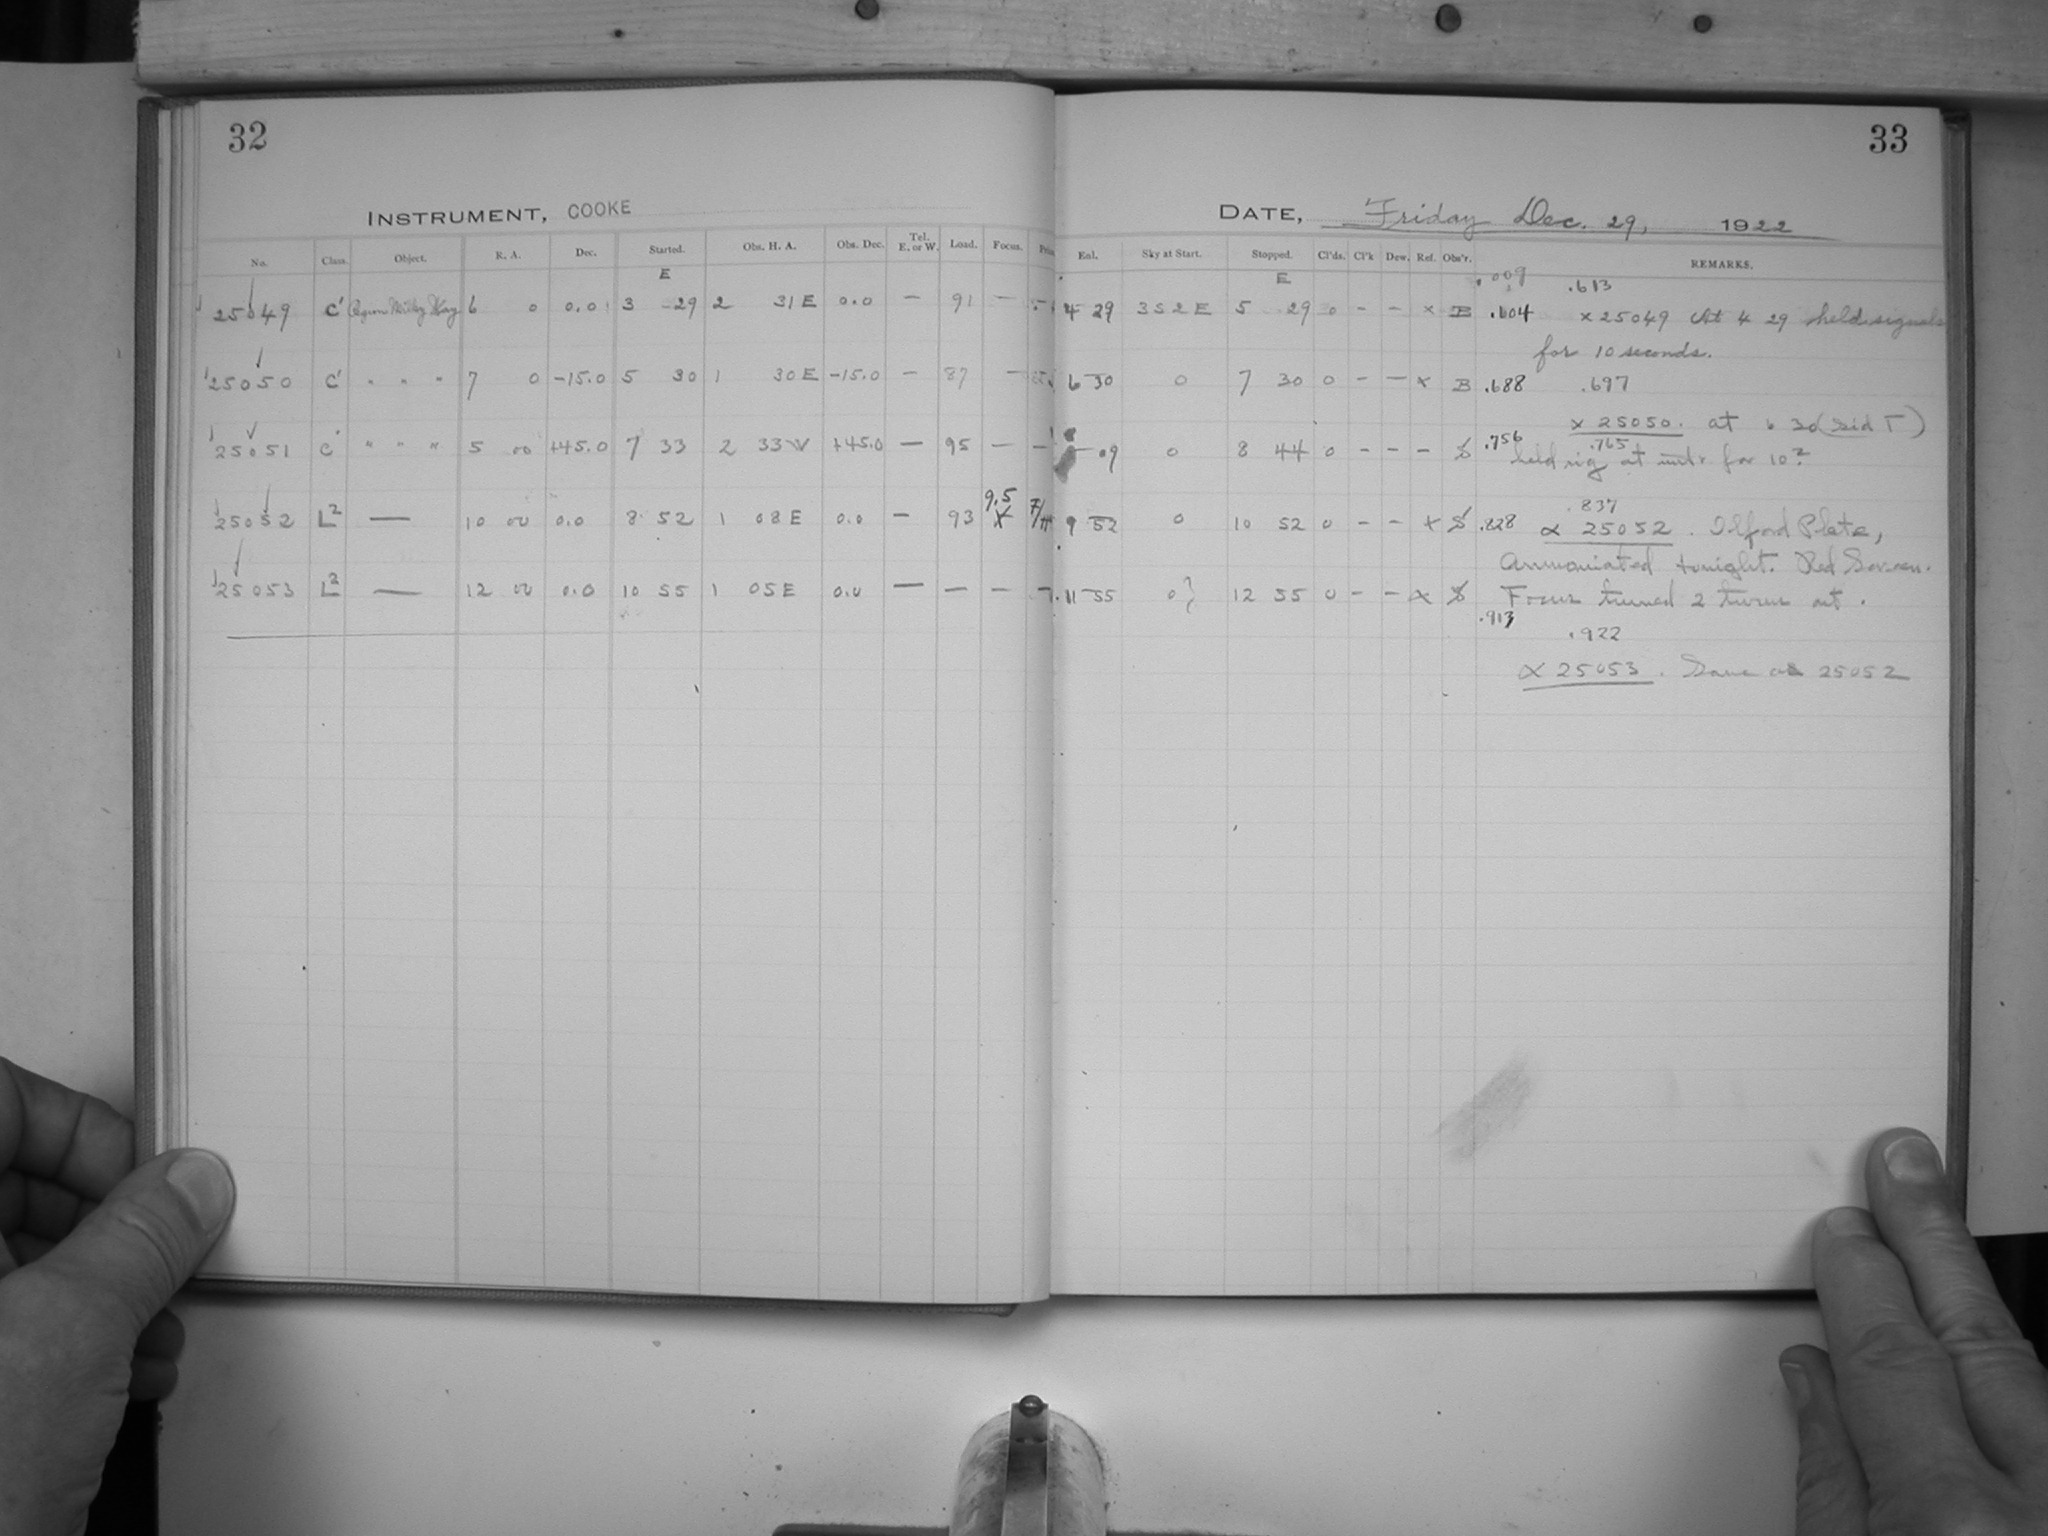 32
INSTRUMENT, COOKE
No. Class. Object. R. A. Dec. Started. Obs. H. A. Obs. Dec. Tel. E. or W. Load. Focus.
E
25049 C' Milky Way 6 0 0.0 3 29 2 31 E 0.0 — 91 —
25050 C' " " " 7 0 -15.0 5 30 1 30 E -15.0 — 87 —
25051 C' " " " 5 00 +45.0 7 33 2 33 W +45.0 — 95 — —
9.5
25052 L2 — 10 00 0.0 8 52 1 08 E 0.0 — 93 X
25053 L2 — 12 00 0.0 10 55 1 05 E 0.0 — — —
33
DATE, Friday Dec. 29, 1922
Eol. Sky at Start. Stopped. Cl'ds. Cl'k Dew. Ref. Obs'r. REMARKS.
E .009 .613
4 29 3 S 2 E 5 29 0 - - x B .604 x 25049 At 4 29 held signals
for 10 seconds.
6 30 0 7 30 0 - - x B .688 .697
x 25050. at 6 30 (Sid T)
09 0 8 44 0 - - - S .756 .765
held sig at for 10s
.837
9 52 0 10 52 0 - - x S .828 x 25052. Ilford Plate,
Ammoniated tonight. Red Screen.
11 55 0 12 55 0 - - x S Focus turned 2 turns out.
.913
.922
x 25053. Same as 25052